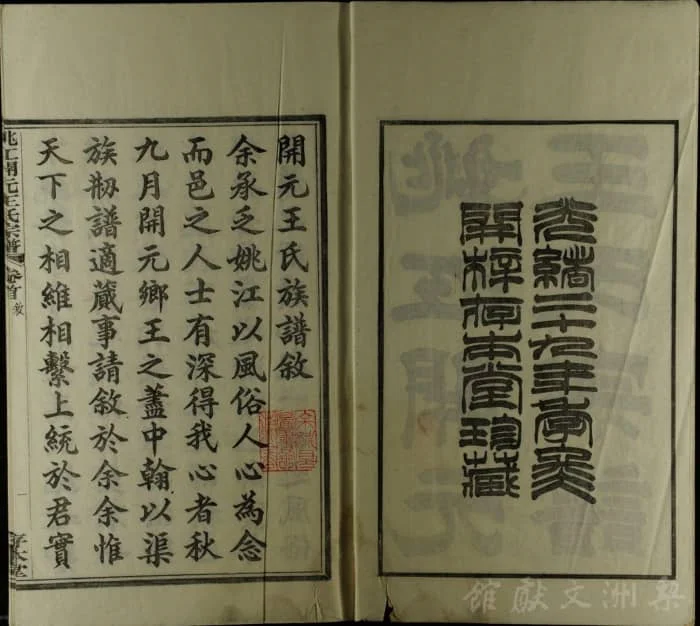 光緒二十九年季冬
開梓存本堂珍藏
開元王氏族譜敘
余承乏姚江以風俗人心為念
而邑之人士有深得我心者秋
九月開元鄉王之藎中翰以渠
族剏譜適蕆事請敘於余余惟
天下之相維相繫上統於君實
姚江開元王氏宗譜 卷首 敘 一 存本堂
梨洲文獻館